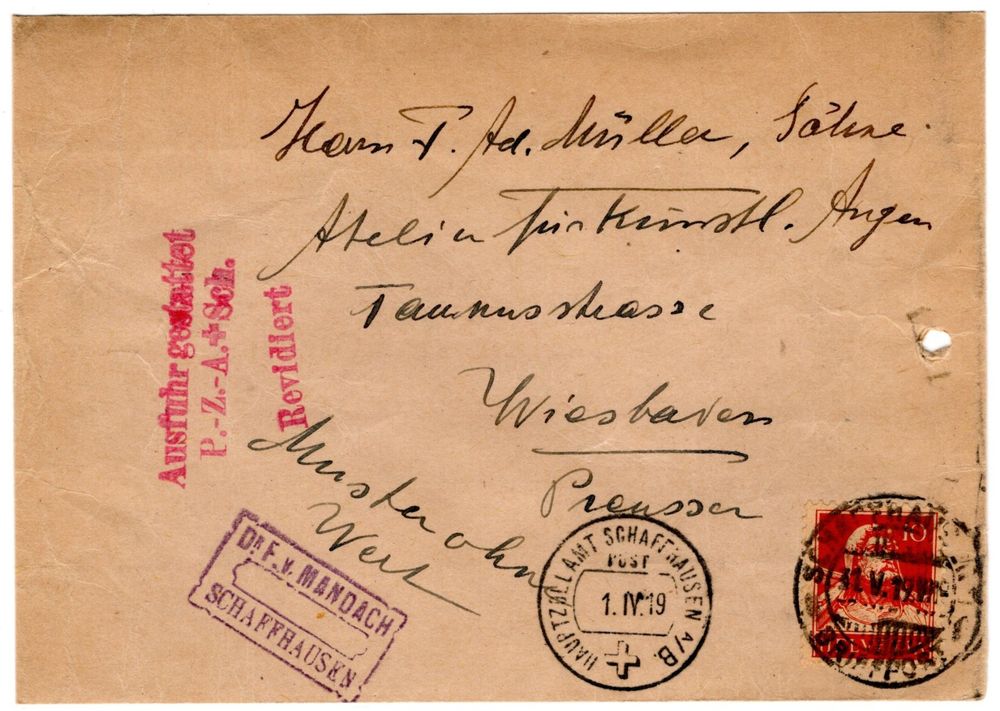 Herrn F. Ad. Müller, Söhne.
Atelier für Künstl. Augen
Taunusstrasse
Wiesbaden
Preussen
Muster ohne
Wert
Ausfuhr gestattet
P.-Z.-A.+Sch.
Revidiert
Dr F. v. MANDACH
SCHAFFHAUSEN
HAUPTZOLLAMT SCHAFFHAUSEN A/B.
POST
1.IV.19
10
BRIEFPOST